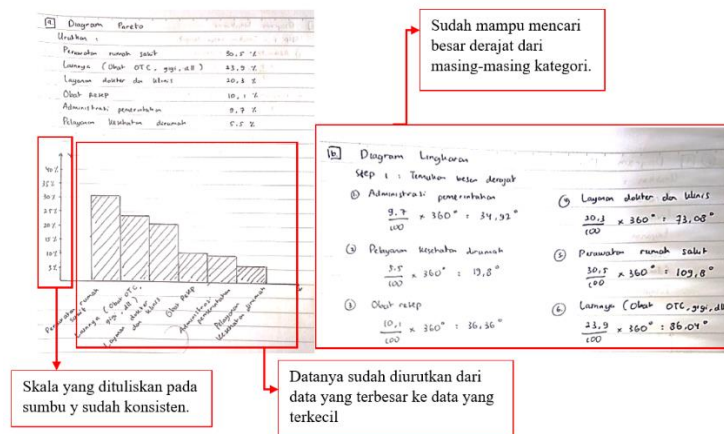 a Diagram Pareto
Urutkan :
Perawatan rumah sakit 30,5 %
Lainnya (Obat OTC, gigi, dll) 23,9 %
Layanan dokter dan klinis 20,3 %
Obat Resep 10,1 %
Administrasi pemerintahan 9,7 %
Pelayanan kesehatan dirumah 5,5 %
40%
35%
30%
25%
20%
15%
10%
5%
Perawatan rumah sakit
Lainnya (Obat OTC, gigi, dll)
Layanan dokter dan klinis
Obat Resep
Administrasi pemerintahan
Pelayanan kesehatan dirumah
Sudah mampu mencari
besar derajat dari
masing-masing kategori.
b Diagram Lingkaran
Step 1 : Temukan besar derajat
① Administrasi pemerintahan
9,7/100 × 360° = 34,92°
② Pelayanan kesehatan dirumah
5,5/100 × 360° = 19,8°
③ Obat resep
10,1/100 × 360° = 36,36°
④ Layanan dokter dan klinis
20,3/100 × 360° = 73,08°
⑤ Perawatan rumah sakit
30,5/100 × 360° = 109,8°
⑥ Lainnya (Obat OTC, gigi, dll)
23,9/100 × 360° = 86,04°
Skala yang dituliskan pada
sumbu y sudah konsisten.
Datanya sudah diurutkan dari
data yang terbesar ke data yang
terkecil